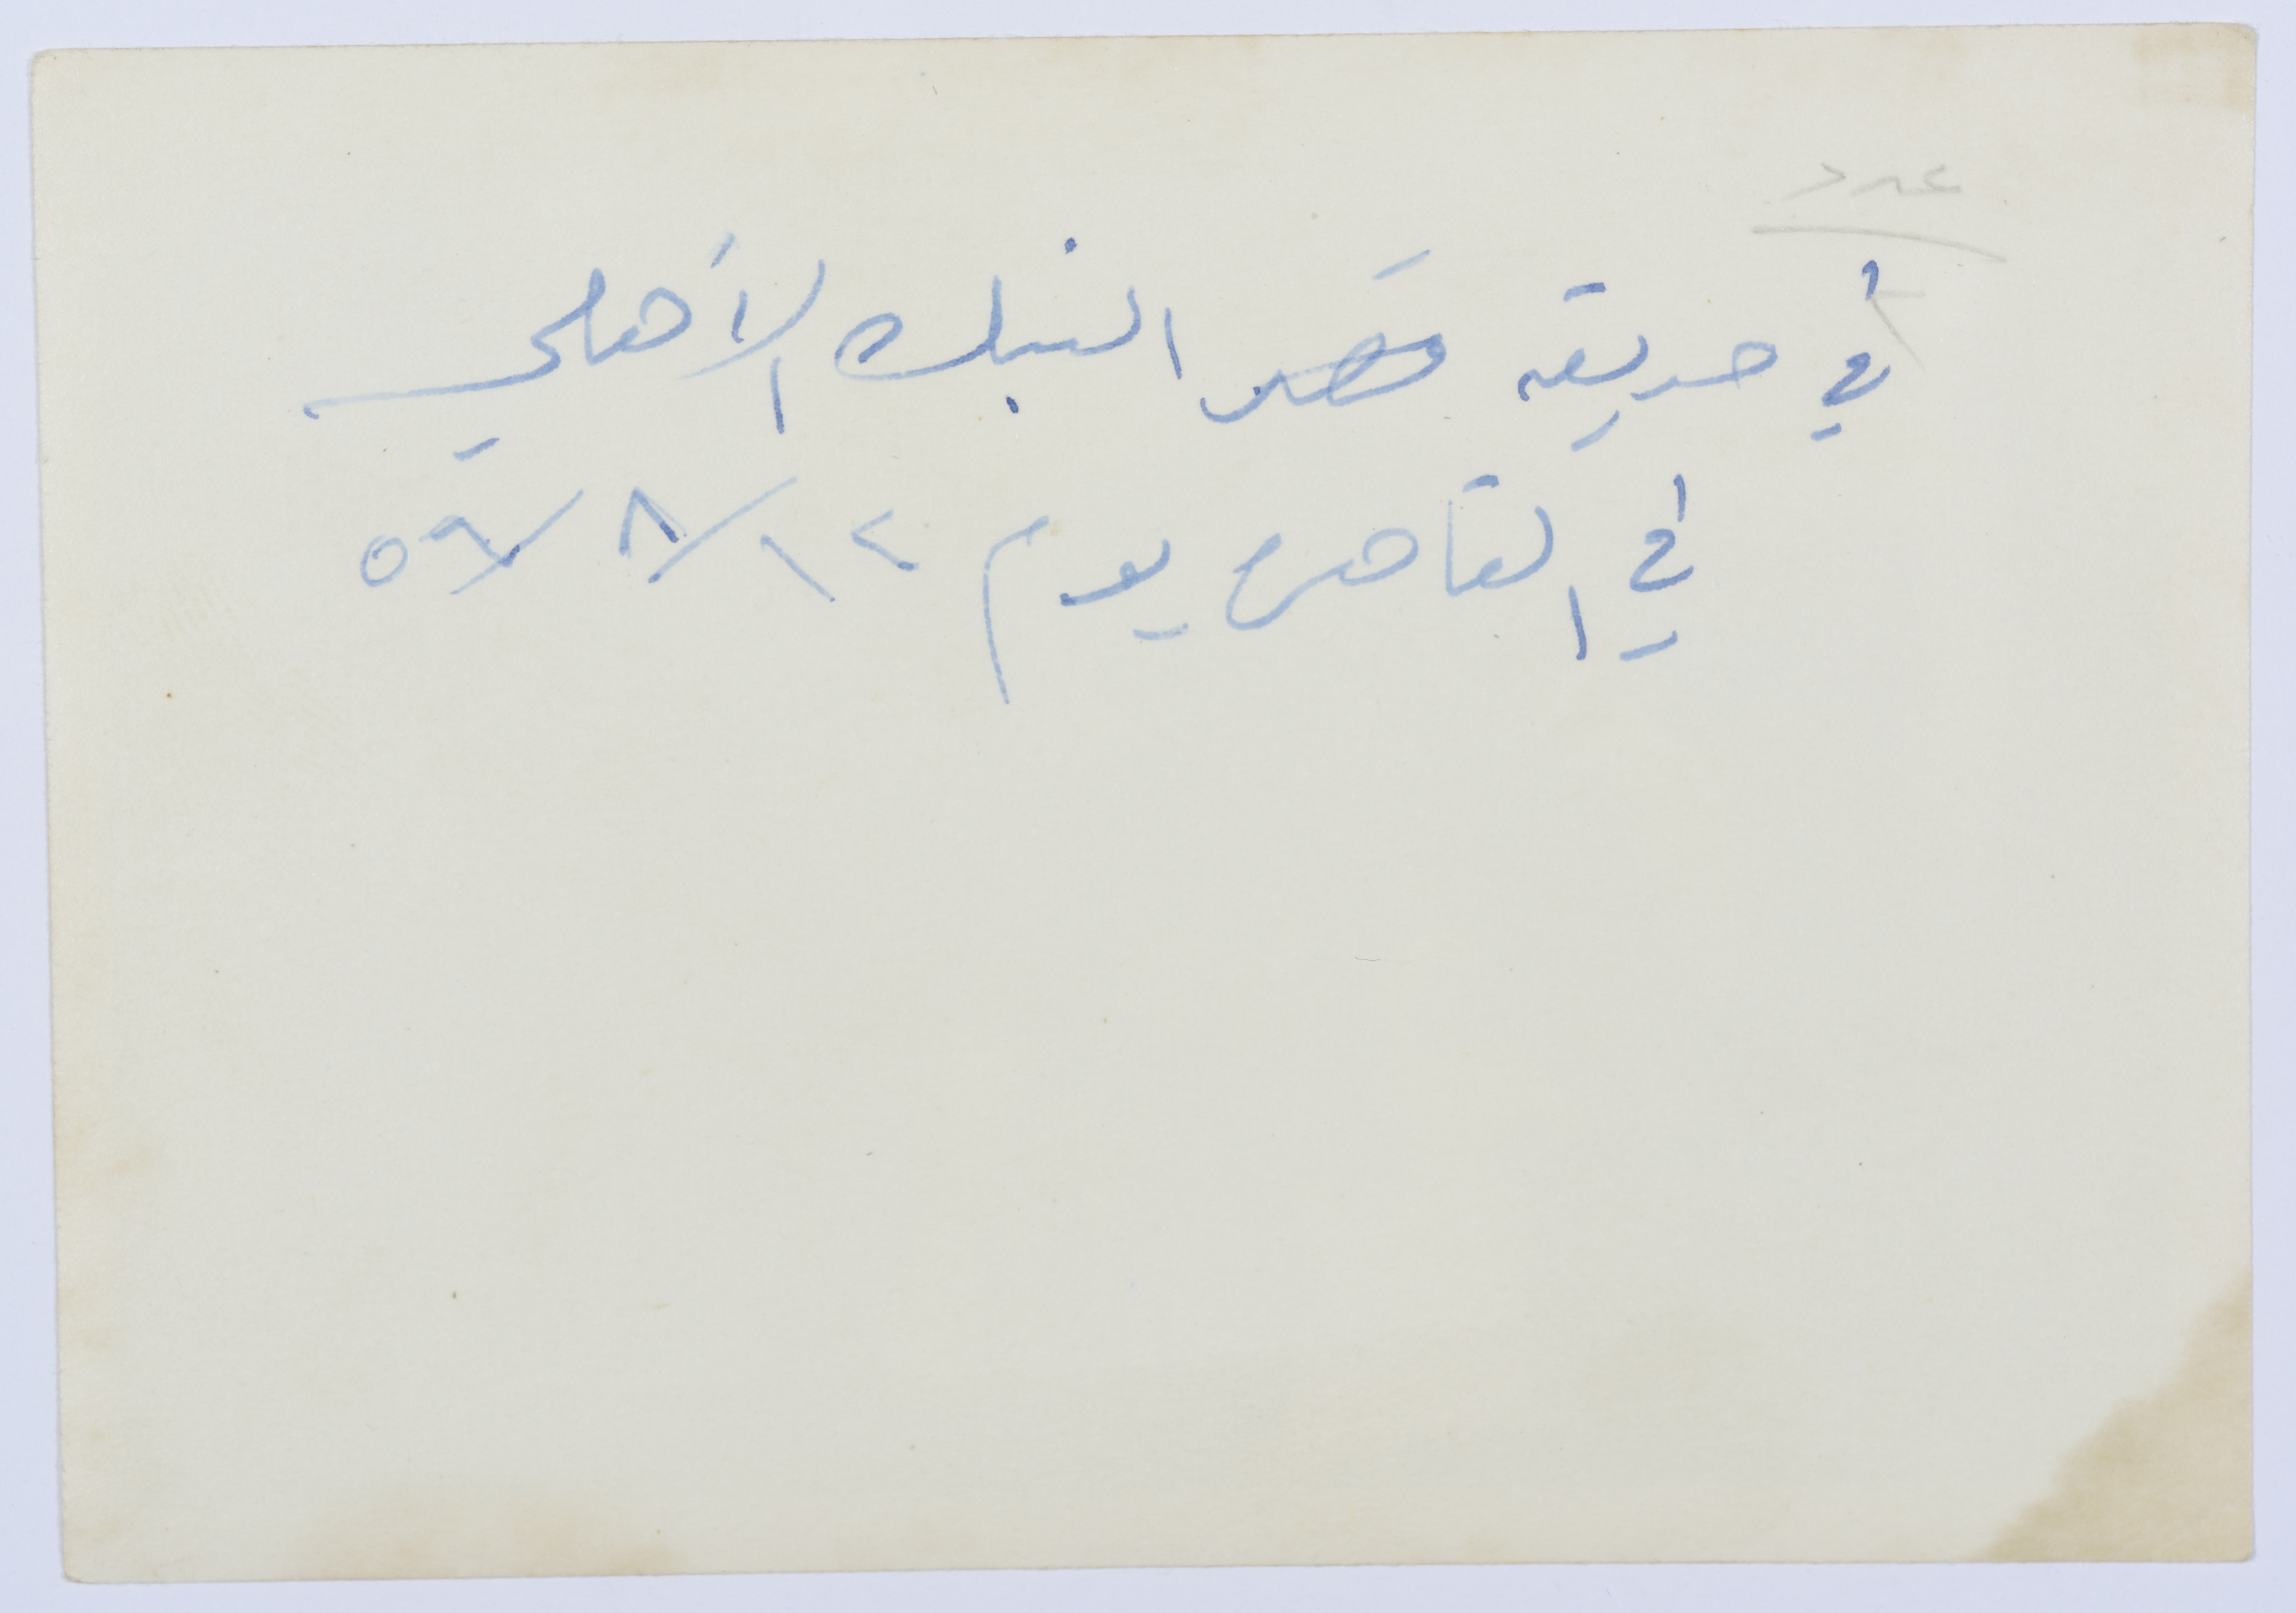 عدد
٢
في حديقة قصر البنك الأهلي
في القاهرة يوم ١٢/٨/٥٩